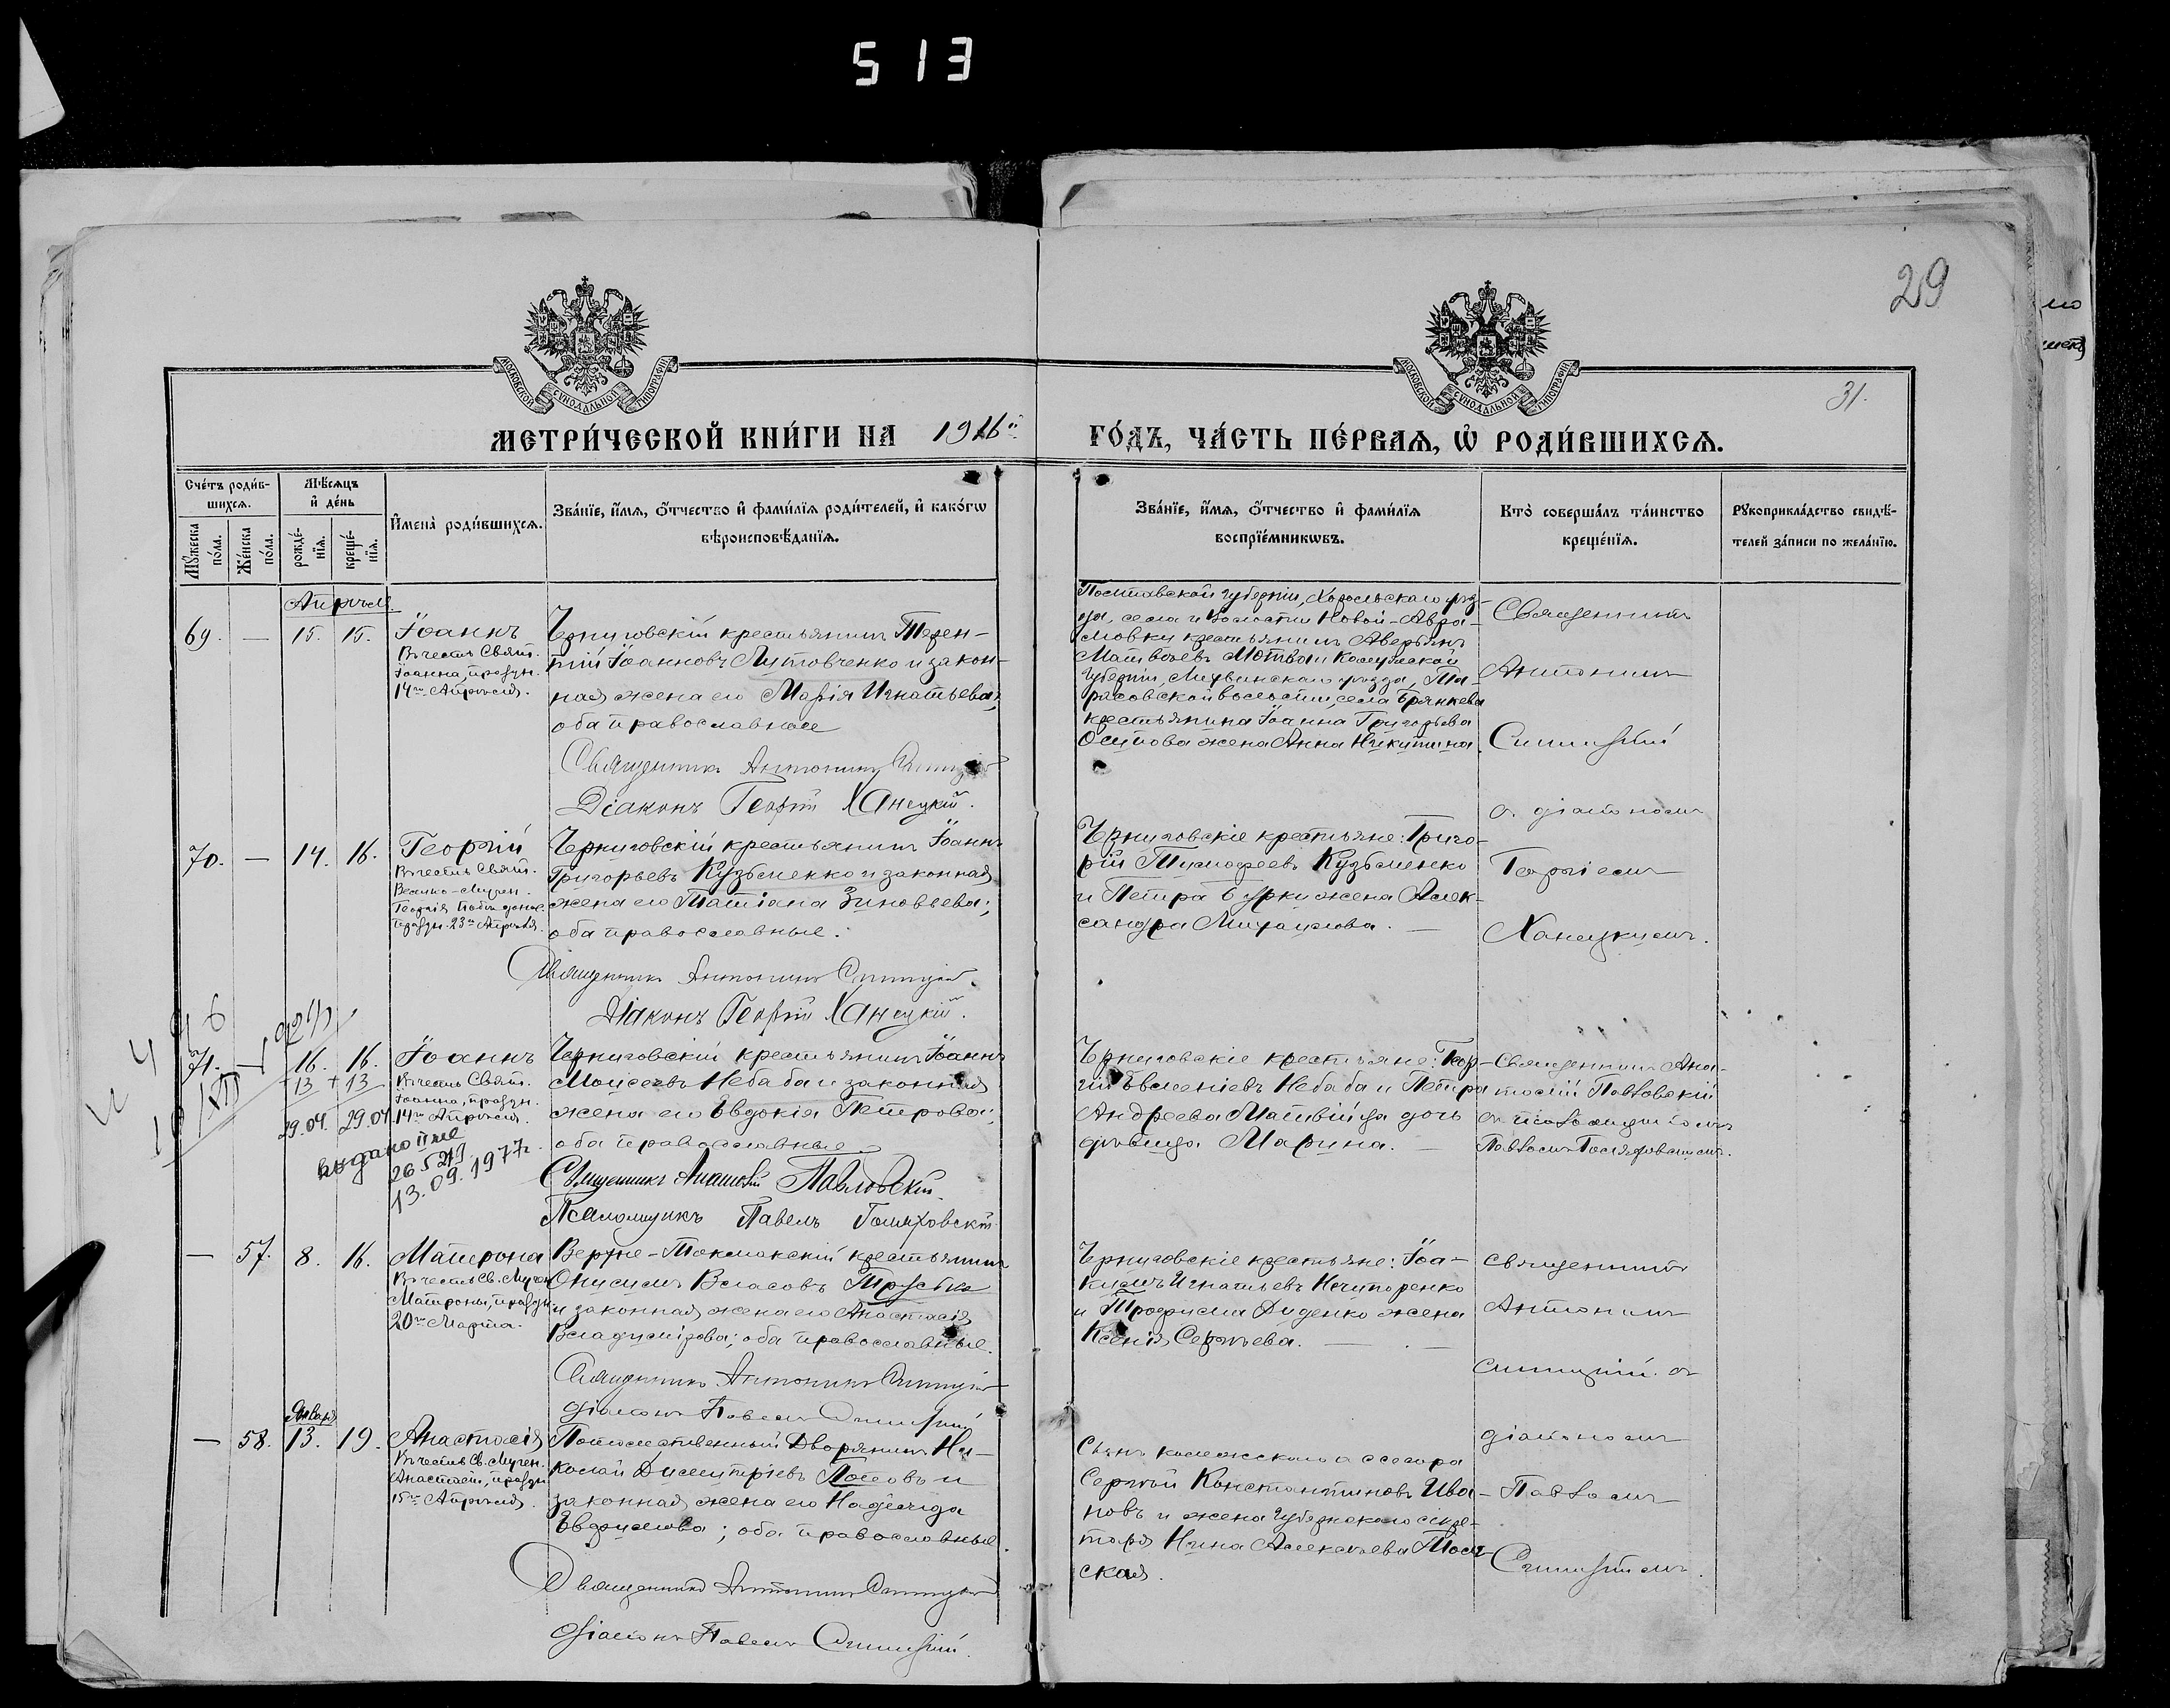 513
29
31.
МОСКОВСКОЙ СѴНОДАЛЬНОЙ ТИПОГРАФІИ
МОСКОВСКОЙ СѴНОДАЛЬНОЙ ТИПОГРАФІИ
МЕТРИ́ЧЕСКОЙ КНИ́ГИ НА 1916й
ГО́ДЪ, ЧА́СТЬ ПЕ́РВАЯ, Ѡ РОДИ́ВШИХСЯ.
Сче́тъ роди́в-
шихся.
Мѣ́сяцъ
и де́нь
Мꙋ́жеска по́ла.
Же́нска по́ла.
рожде́-
нїя.
креще́-
нїя.
Имена̀ роди́вшихся.
Зва́нїе, и́мя, о́тчество и фами́лїя роди́телей, и како́гѡ
вѣроисповѣ́данїя.
Зва́нїе, и́мя, о́тчество и фами́лїя
воспрїе́мникѡвъ.
Кто̀ соверша́лъ та́инство
креще́нїя.
Рꙋкоприкла́дство свидѣ́-
телей за́писи по жела́нїю.
Апрѣль
69. — 15. 15. Іоаннъ
Въ честь Свят.
Іоанна, праздн.
14го Апрѣля.
Черниговскій крестьянинъ Терен-
тій Іоанновъ Лутовченко и закон-
ная жена его Марія Игнатьева;
оба православные
Священникъ Антонинъ Синицкій
Діаконъ Георгій Ханецкій.
Полтавской губерніи, Хорольскаго уѣз-
да, села и волости Новой-Авра-
мовки крестьянинъ Аверьянъ
Матвѣевъ и Калужской
губерніи, Лихвинскаго уѣзда, Та-
расовской волости, села
крестьянина Іоанна Григорьева
Осипова жена Анна Никитина
Священникъ
Антонинъ
Синицкій
съ діакономъ
70. — 14. 16. Георгій
Въ честь Свят.
Велико-Мучен.
Георгія Побѣдонос.
праздн. 23го Апрѣля.
Черниговскій крестьянинъ Іоаннъ
Григорьевъ Кузьменко и законная
жена его Татіана Зиновьева;
оба православные.
Священникъ Антонинъ Синицкій.
Діаконъ Георгій Ханецкій.
Черниговскіе крестьяне: Григо-
рій Тимофеевъ Кузьменко
и Петра Бурки жена Алек-
сандра Михаилова. —
Георгіемъ
Ханецкимъ.
71. 16. 16. Іоаннъ
+13 +13
29.04 29.04
Въ честь Свят.
Іоанна, праздн.
14го Апрѣля.
выдано
13.09.1977г.
Черниговскій крестьянинъ Іоаннъ
Моисеевъ Небаба и законная
жена его Евдокія Петрова;
оба православные
Священникъ Анатолій Павловскій.
Псаломщикъ Павелъ
Черниговскіе крестьяне: Геор-
гій Евменіевъ Небаба и Петра
Андреева Матвійца дочь
дѣвица Марина. —
Священникъ Ана-
толій Павловскій
съ псаломщикомъ
Павломъ
— 57. 8. 16. Матрона
Въ честь Св. Мучен.
Матроны, праздн.
20го Марта.
Верхне-Токмакскій крестьянинъ
Онисимъ Власовъ
и законная жена его Анастасія
Владимірова; оба православные.
Священникъ Антонинъ Синицкій
діаконъ Павелъ Синицкій
Черниговскіе крестьяне: Іоа-
кимъ Игнатьевъ Нечипоренко
и Трофима Диденко жена
Ксенія Сергѣева. —
Священникъ
Антонинъ
Синицкій съ
Января
— 58. 13. 19. Анастасія
Въ честь Св. Мучен.
Анастасіи, праздн.
15го Апрѣля.
Потомственный Дворянинъ Ни-
колай Димитріевъ Поповъ и
законная жена его Надежда
Евфимова; оба православные.
Священникъ Антонинъ Синицкій
діаконъ Павелъ Синицкій.
Сынъ коллежскаго ассесора
Сергѣй Константиновъ Ива-
новъ и жена губернскаго секре-
таря Нина Алексѣева
ская.
діакономъ
Павломъ
Синицкимъ.